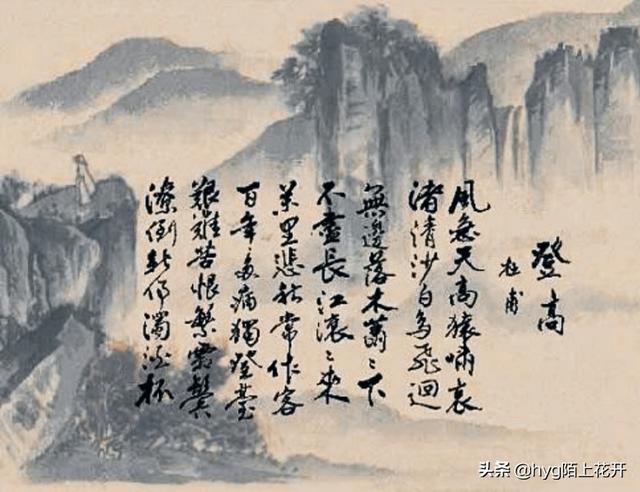 登高
杜甫
風急天高猿嘯哀
渚清沙白鸟飛迴
無邊落木蕭〻下
不盡長江滚〻来
萬里悲秋常作客
百年多病獨登臺
艱難苦恨繁霜鬢
潦倒新停濁酒杯
头条 @hyg陌上花开